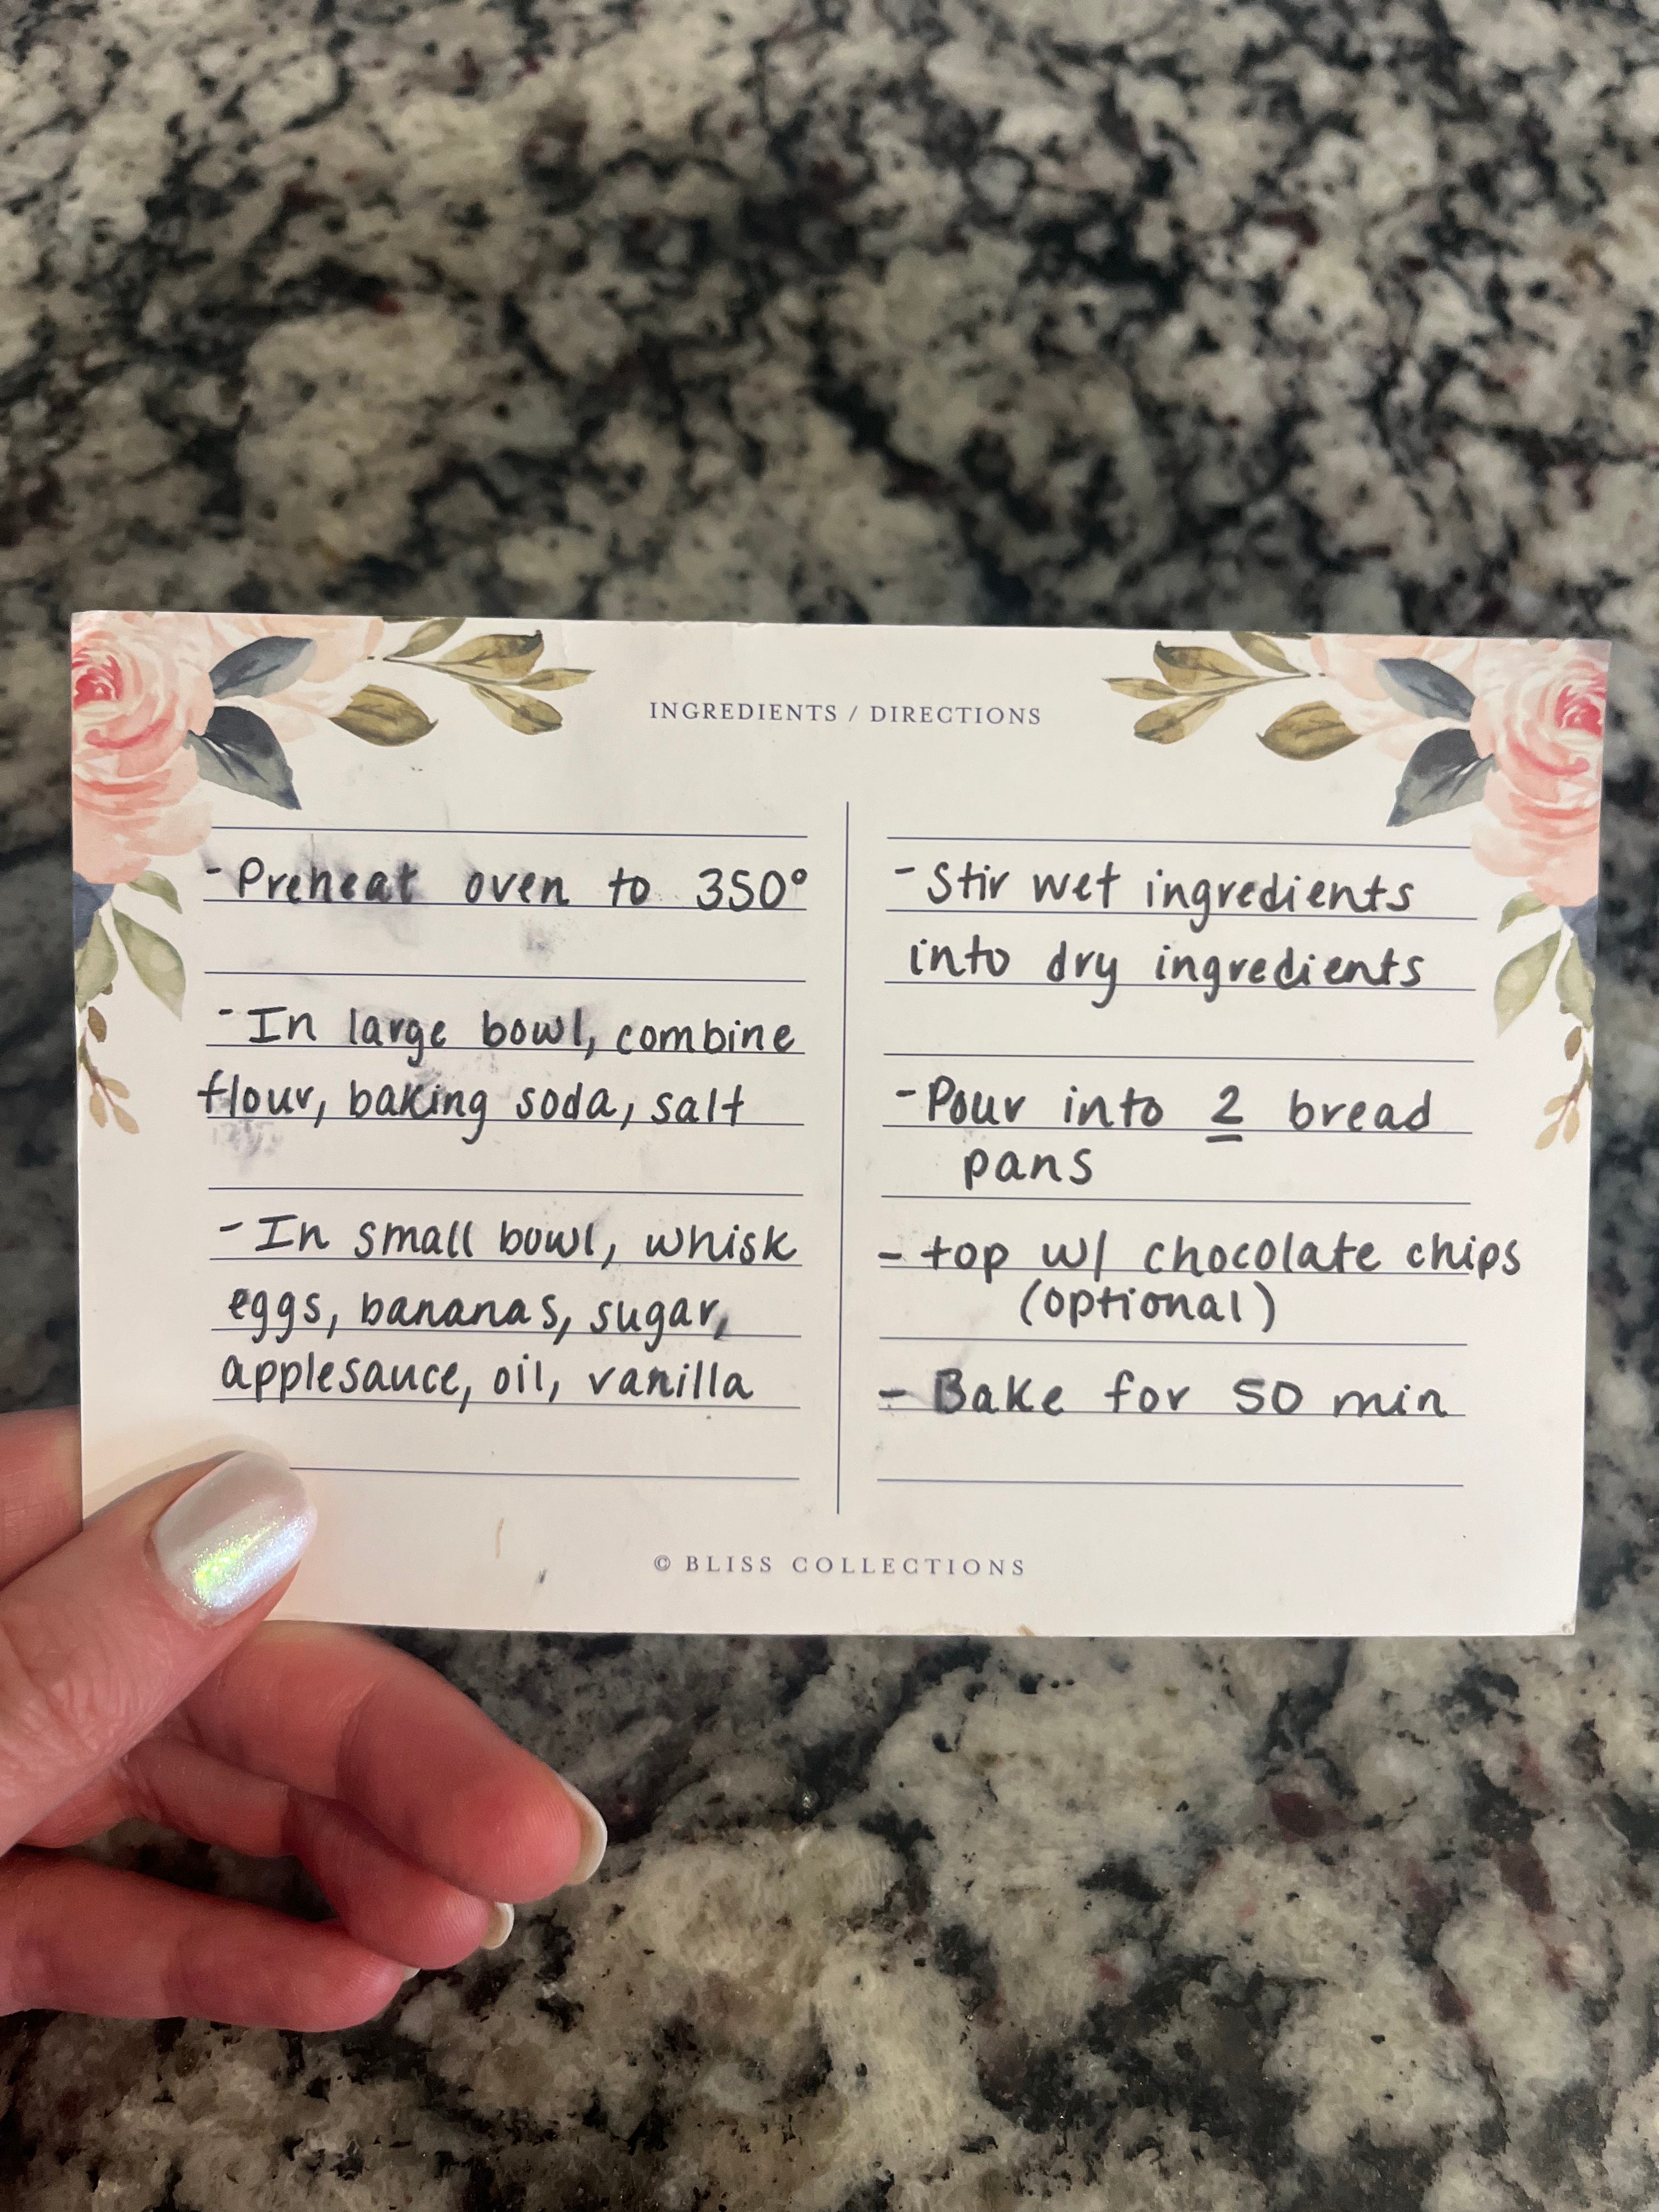 INGREDIENTS / DIRECTIONS
- Preheat oven to 350°
- In large bowl, combine
flour, baking soda, salt
- In small bowl, whisk
eggs, bananas, sugar,
applesauce, oil, vanilla
- Stir wet ingredients
into dry ingredients
- Pour into 2 bread
pans
- top w/ chocolate chips
(optional)
- Bake for 50 min
© BLISS COLLECTIONS